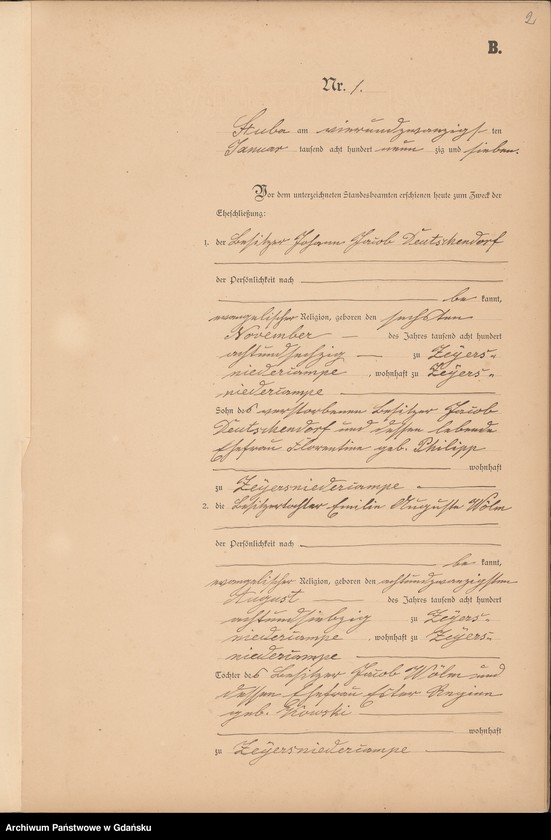 2
B.
Nr. 1.
Stuba am vierundzwanzigsten
Januar tausend acht hundert neunzig und sieben.
Vor dem unterzeichneten Standesbeamten erschienen heute zum Zweck der
Eheschließung:
1. der Besitzer Johann Jacob Deutschendorf
der Persönlichkeit nach
bekannt,
evangelischer Religion, geboren den sechsten
November des Jahres tausend acht hundert
achtundsechzig zu Zeyers-
niedercampe, wohnhaft zu Zeyers-
niedercampe
Sohn des verstorbenen Besitzer Jacob
Deutschendorf und dessen lebende
Ehefrau Florentine geb. Philipp
wohnhaft
zu Zeyersniedercampe
2. die Besitzertochter Emilie Auguste Wölm
der Persönlichkeit nach
bekannt,
evangelischer Religion, geboren den achtundzwanzigsten
August des Jahres tausend acht hundert
achtundsiebzig zu Zeyers-
niedercampe, wohnhaft zu Zeyers-
niedercampe
Tochter des Besitzer Jacob Wölm und
dessen Ehefrau Ester Regine
geb.
wohnhaft
zu Zeyersniedercampe
Archiwum Państwowe w Gdańsku